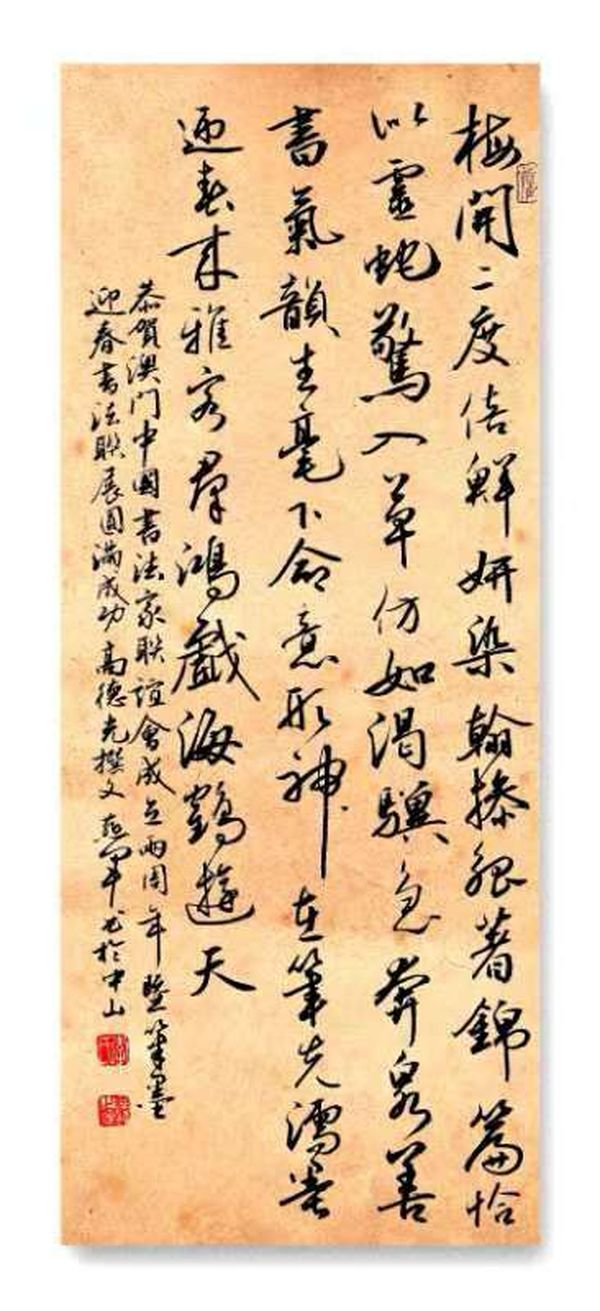 梅開二度倍鮮妍染翰操觚著錦篇恰
似靈蛇驚入草仿如渴驥急奔泉善
書氣韻生毫下命意形神在筆先濡墨
迎春來雅客群鴻戲海鶴遊天
恭賀澳门中國書法家聯誼會成立兩周年暨筆墨
迎春書法聯展圓滿成功 高德光撰文 书於中山